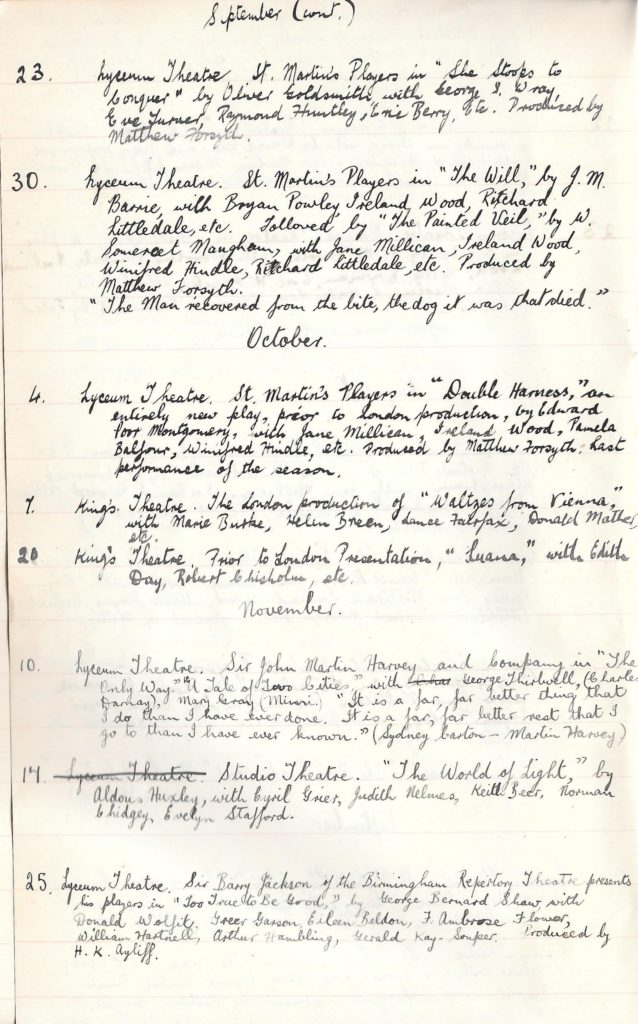 September (cont.)
23. Lyceum Theatre. St. Martin's Players in "She Stoops to
Conquer" by Oliver Goldsmith, with George S. Wray,
Eve Turner, Raymond Huntley, Eric Berry, Etc. Produced by
Matthew Forsyth.
30. Lyceum Theatre. St. Martin's Players in "The Will," by J. M.
Barrie, with Bryan Powley, Ireland Wood, Ritchard
Littledale, etc. Followed by "The Painted Veil," by W.
Somerset Maugham, with Jane Millican, Ireland Wood,
Winifred Hindle, Ritchard Littledale, etc. Produced by
Matthew Forsyth.
"The Man recovered from the bite, the dog it was that died."
October.
4. Lyceum Theatre. St. Martin's Players in "Double Harness," an
entirely new play, prior to London production, by Edward
Poor Montgomery, with Jane Millican, Ireland Wood, Pamela
Balfour, Winifred Hindle, etc. Produced by Matthew Forsyth. Last
performance of the season.
7. King's Theatre. The London production of "Waltzes from Vienna,"
with Marie Burke, Helen Breen, Lance Fairfax, Donald Mather,
etc.
20 King's Theatre. Prior to London Presentation, "Luana," with Edith
Day, Robert Chisholm, etc.
November.
10. Lyceum Theatre. Sir John Martin Harvey and Company in "The
Only Way." "A Tale of Two Cities" with George Thirlwell, (Charles
Darnay), Mary Gray (Mimi.) "It is a far, far better thing that
I do than I have ever done. It is a far, far better rest that I
go to than I have ever known." (Sydney Carton - Martin Harvey)
17. Lyceum Theatre Studio Theatre. "The World of Light," by
Aldous Huxley, with Cyril Grier, Judith Nelmes, Keith Beer, Norman
Chidgey, Evelyn Stafford.
25. Lyceum Theatre. Sir Barry Jackson of the Birmingham Repertory Theatre presents
his players in "Too True to Be Good," by George Bernard Shaw, with
Donald Wolfit, Greer Garson, Eileen Beldon, F. Ambrose Flower,
William Hartnell, Arthur Hambling, Gerald Kay-Souper. Produced by
H. K. Ayliff.